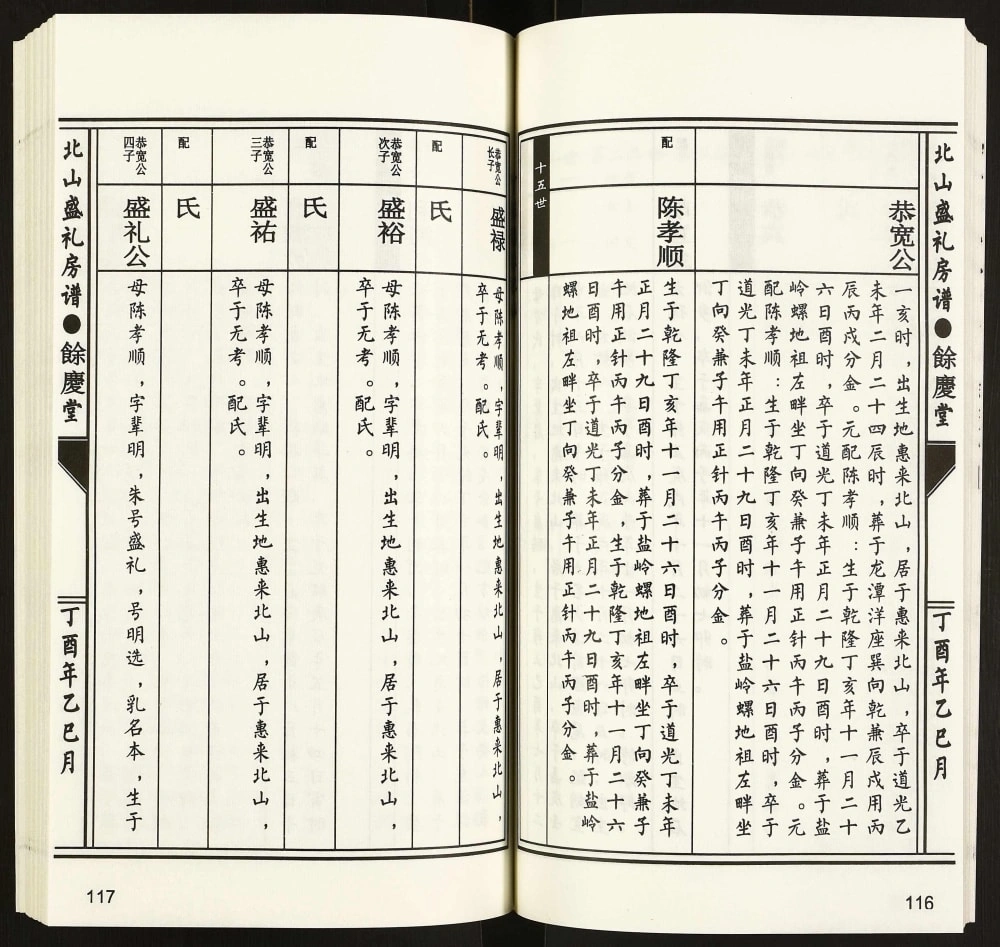 北山盛礼房谱●餘慶堂
丁酉年乙巳月
恭宽公
一亥时，出生地惠来北山，居于惠来北山，卒于道光乙
未年二月二十四辰时，葬于龙潭洋座巽向乾兼辰戌用丙
辰丙戌分金。元配陈孝顺：生于乾隆丁亥年十一月二十
六日酉时，卒于道光丁未年正月二十九日酉时，葬于盐
岭螺地祖左畔坐丁向癸兼子午用正针丙午丙子分金。元
配陈孝顺：生于乾隆丁亥年十一月二十六日酉时，卒于
道光丁未年正月二十九日酉时，葬于盐岭螺地祖左畔坐
丁向癸兼子午用正针丙午丙子分金。
配
陈孝顺
生于乾隆丁亥年十一月二十六日酉时，卒于道光丁未年
正月二十九日酉时，葬于盐岭螺地祖左畔坐丁向癸兼子
午用正针丙午丙子分金，生于乾隆丁亥年十一月二十六
日酉时，卒于道光丁未年正月二十九日酉时，葬于盐岭
螺地祖左畔坐丁向癸兼子午用正针丙午丙子分金。
十五世
116
恭宽公
长子
盛禄
母陈孝顺，字辈明，出生地惠来北山，居于惠来北山，
卒于无考。配氏。
配
氏
恭宽公
次子
盛裕
母陈孝顺，字辈明，出生地惠来北山，居于惠来北山，
卒于无考。配氏。
配
氏
恭宽公
三子
盛祐
母陈孝顺，字辈明，出生地惠来北山，居于惠来北山，
卒于无考。配氏。
配
氏
恭宽公
四子
盛礼公
母陈孝顺，字辈明，朱号盛礼，号明选，乳名本，生于
北山盛礼房谱●餘慶堂
丁酉年乙巳月
117